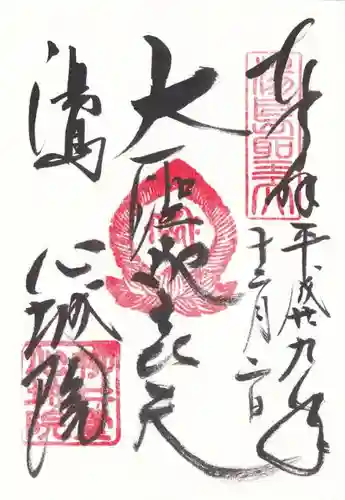 奉拝
平成廿九年
十二月二日
大聖歓喜天
湯島
心城院